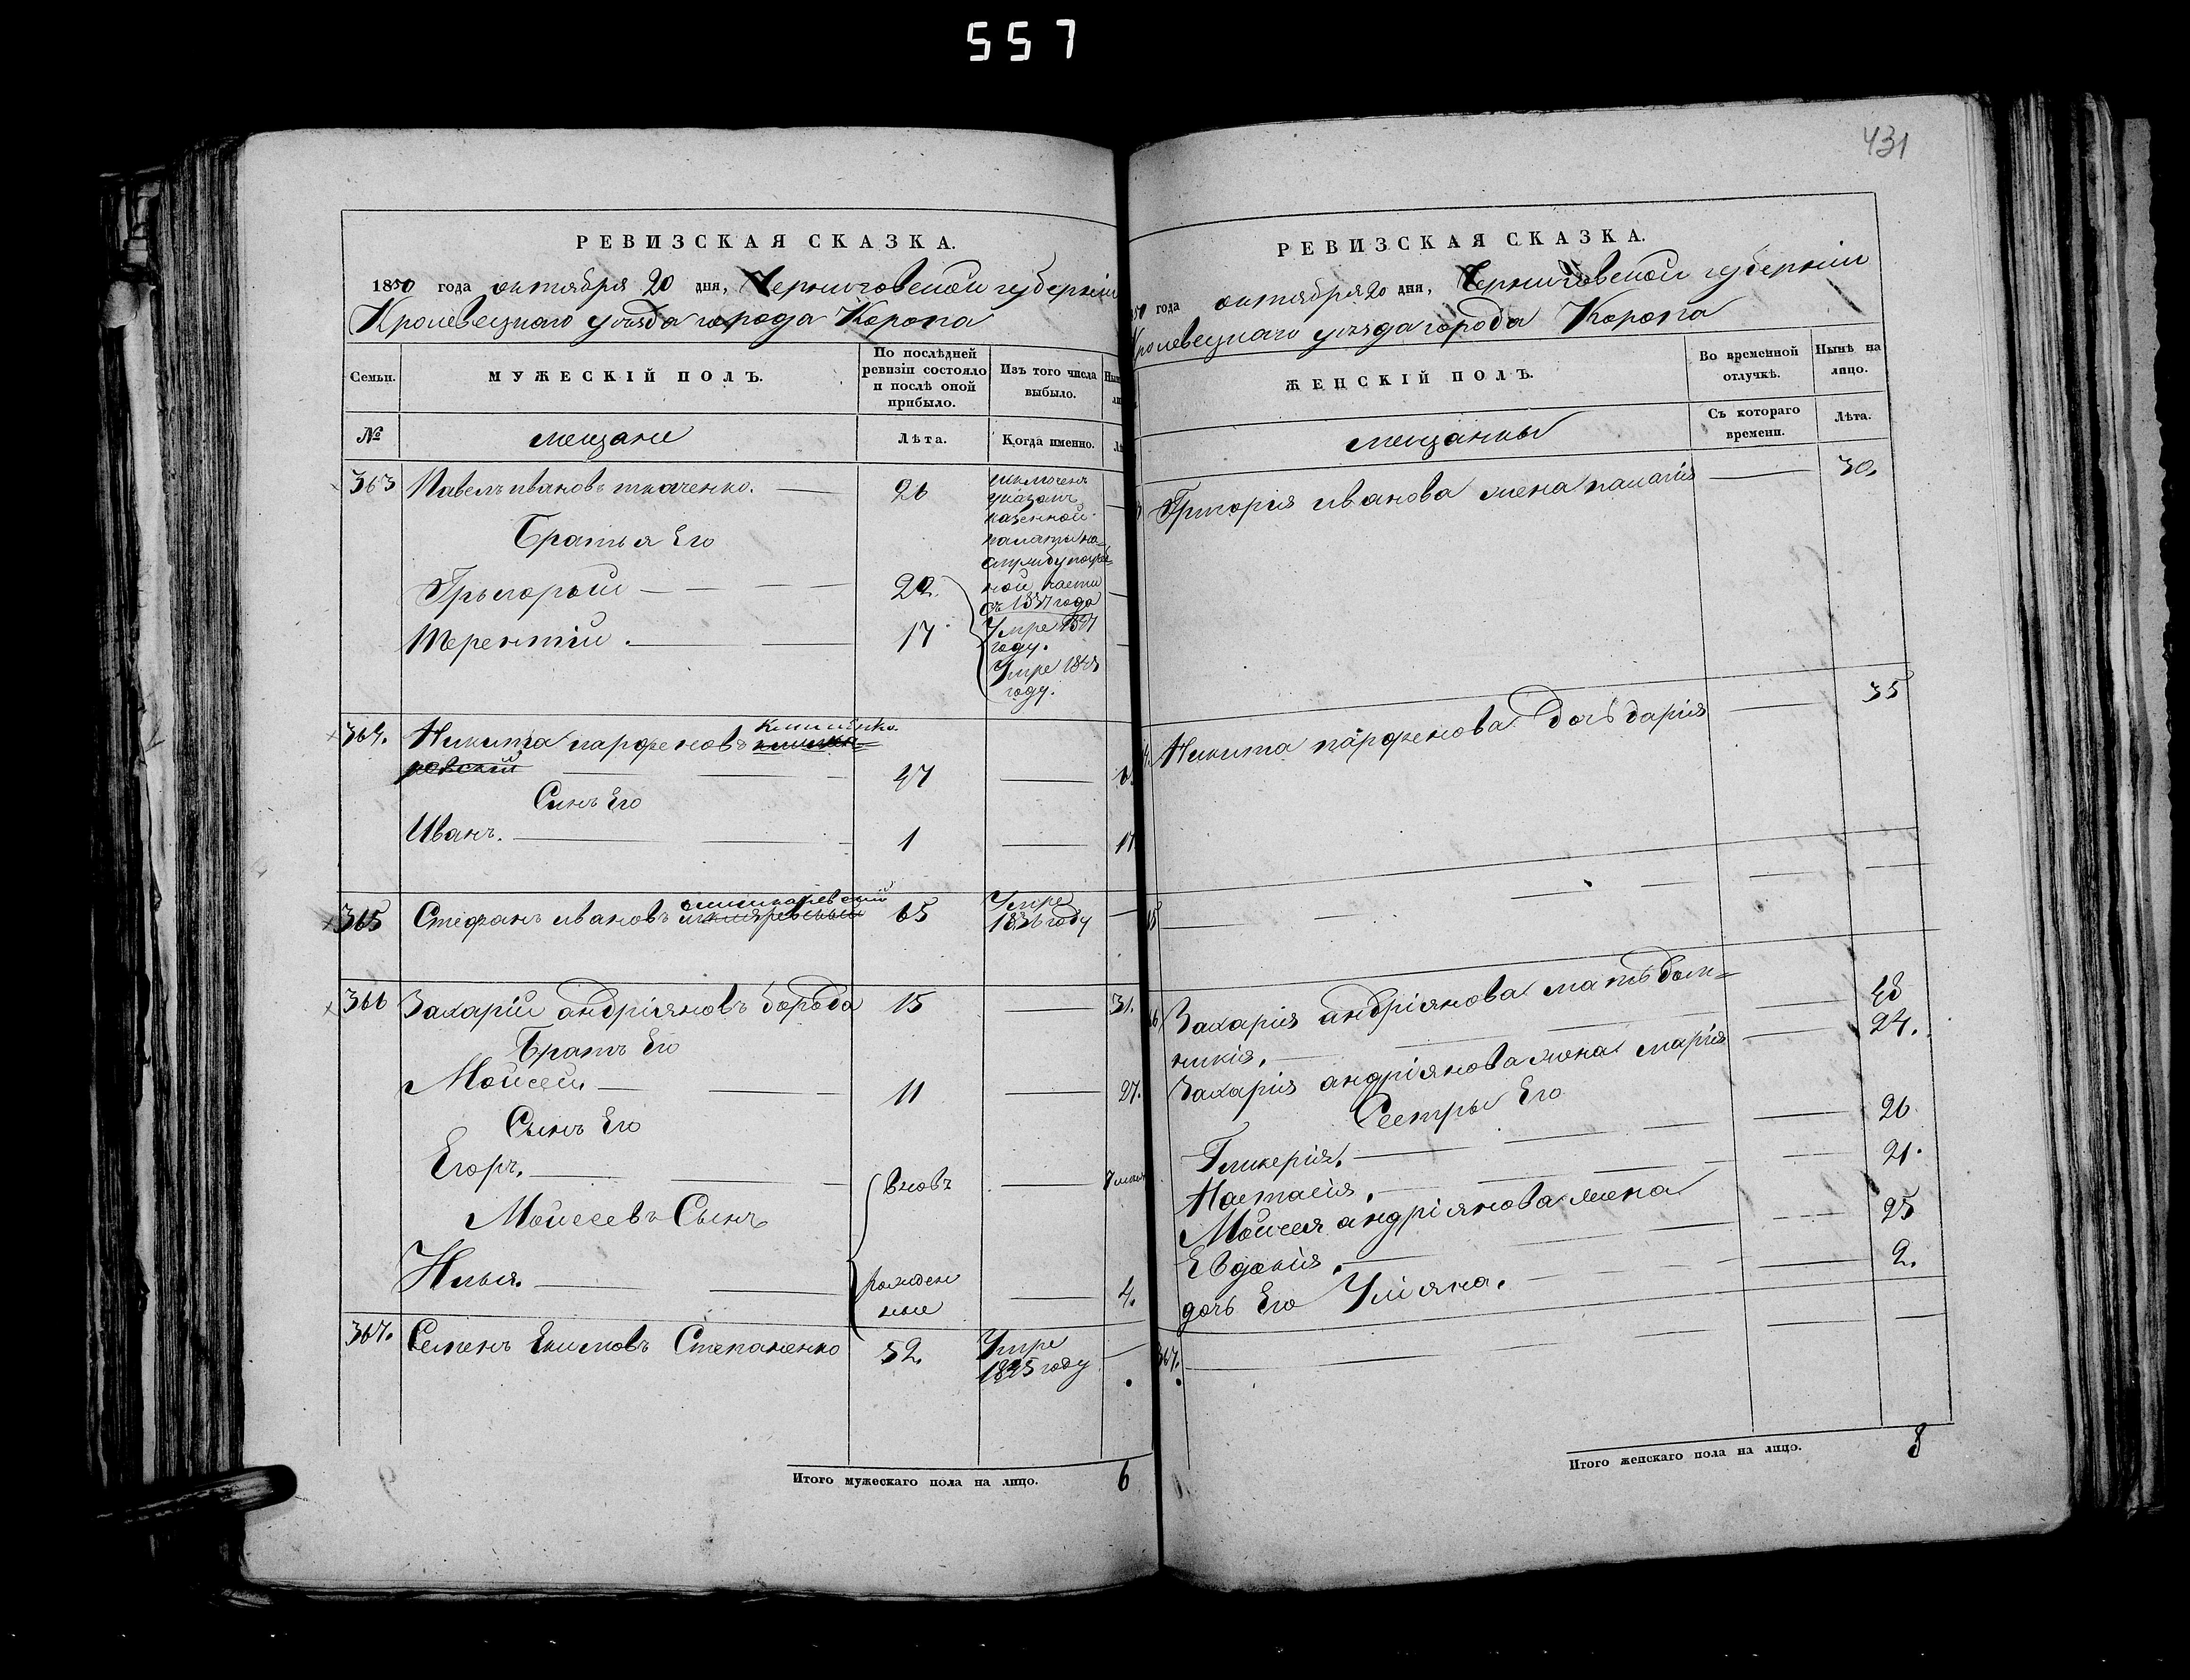 557
431
РЕВИЗСКАЯ СКАЗКА.
1850 года октября 20 дня, Черниговской губерніи
Кролевецкаго уѣзда города Коропа
Семьи.
МУЖЕСКІЙ ПОЛЪ.
По послѣдней ревизіи состояло и послѣ оной прибыло.
Изъ того числа выбыло.
№
мещане
Лѣта.
Когда именно.
363 Павелъ ивановъ ткаченко. 26
изключенъ
указомъ
казенной
палаты на
службу
ной части
съ 1837 года
Братья Его
Грыгорый 22.
Умре
году.
Терентій. 17
Умре 1848
году.
364. Никита парфеновъ 47
Синъ Его
Иванъ. 1 17
365 Стефанъ ивановъ 65 Умре
1836 году
366 Захарій андріяновъ борода 15 31.
Братъ Его
Мойсей 11 27.
Сынъ Его
Егоръ. вновь
Мойсеевъ Сынъ
Илья. рожден
ные 4.
367. Семенъ Екимовъ Степаненко 52. Умре
1845 году
Итого мужескаго пола на лицо. 6
РЕВИЗСКАЯ СКАЗКА.
50 года октября 20 дня, Черниговской губерніи
Кролевецкаго уѣзда города Коропа
ЖЕНСКІЙ ПОЛЪ.
Во временной отлучкѣ.
Нынѣ на лицо.
мещанкы
Съ котораго времени.
Лѣта.
Григорія иванова жена палагія 30.
Никита парфенова дочь дарія 35
Захарія андріянова мать дом=
никія. 48
Захарія андріянова жена марія 24.
Сестры Его
Гликерія. 26
Настасія. 21.
Мойсея андріянова жена
Евдокія. 25
дочь Его Уліяна. 2.
367.
Итого женскаго пола на лицо. 8